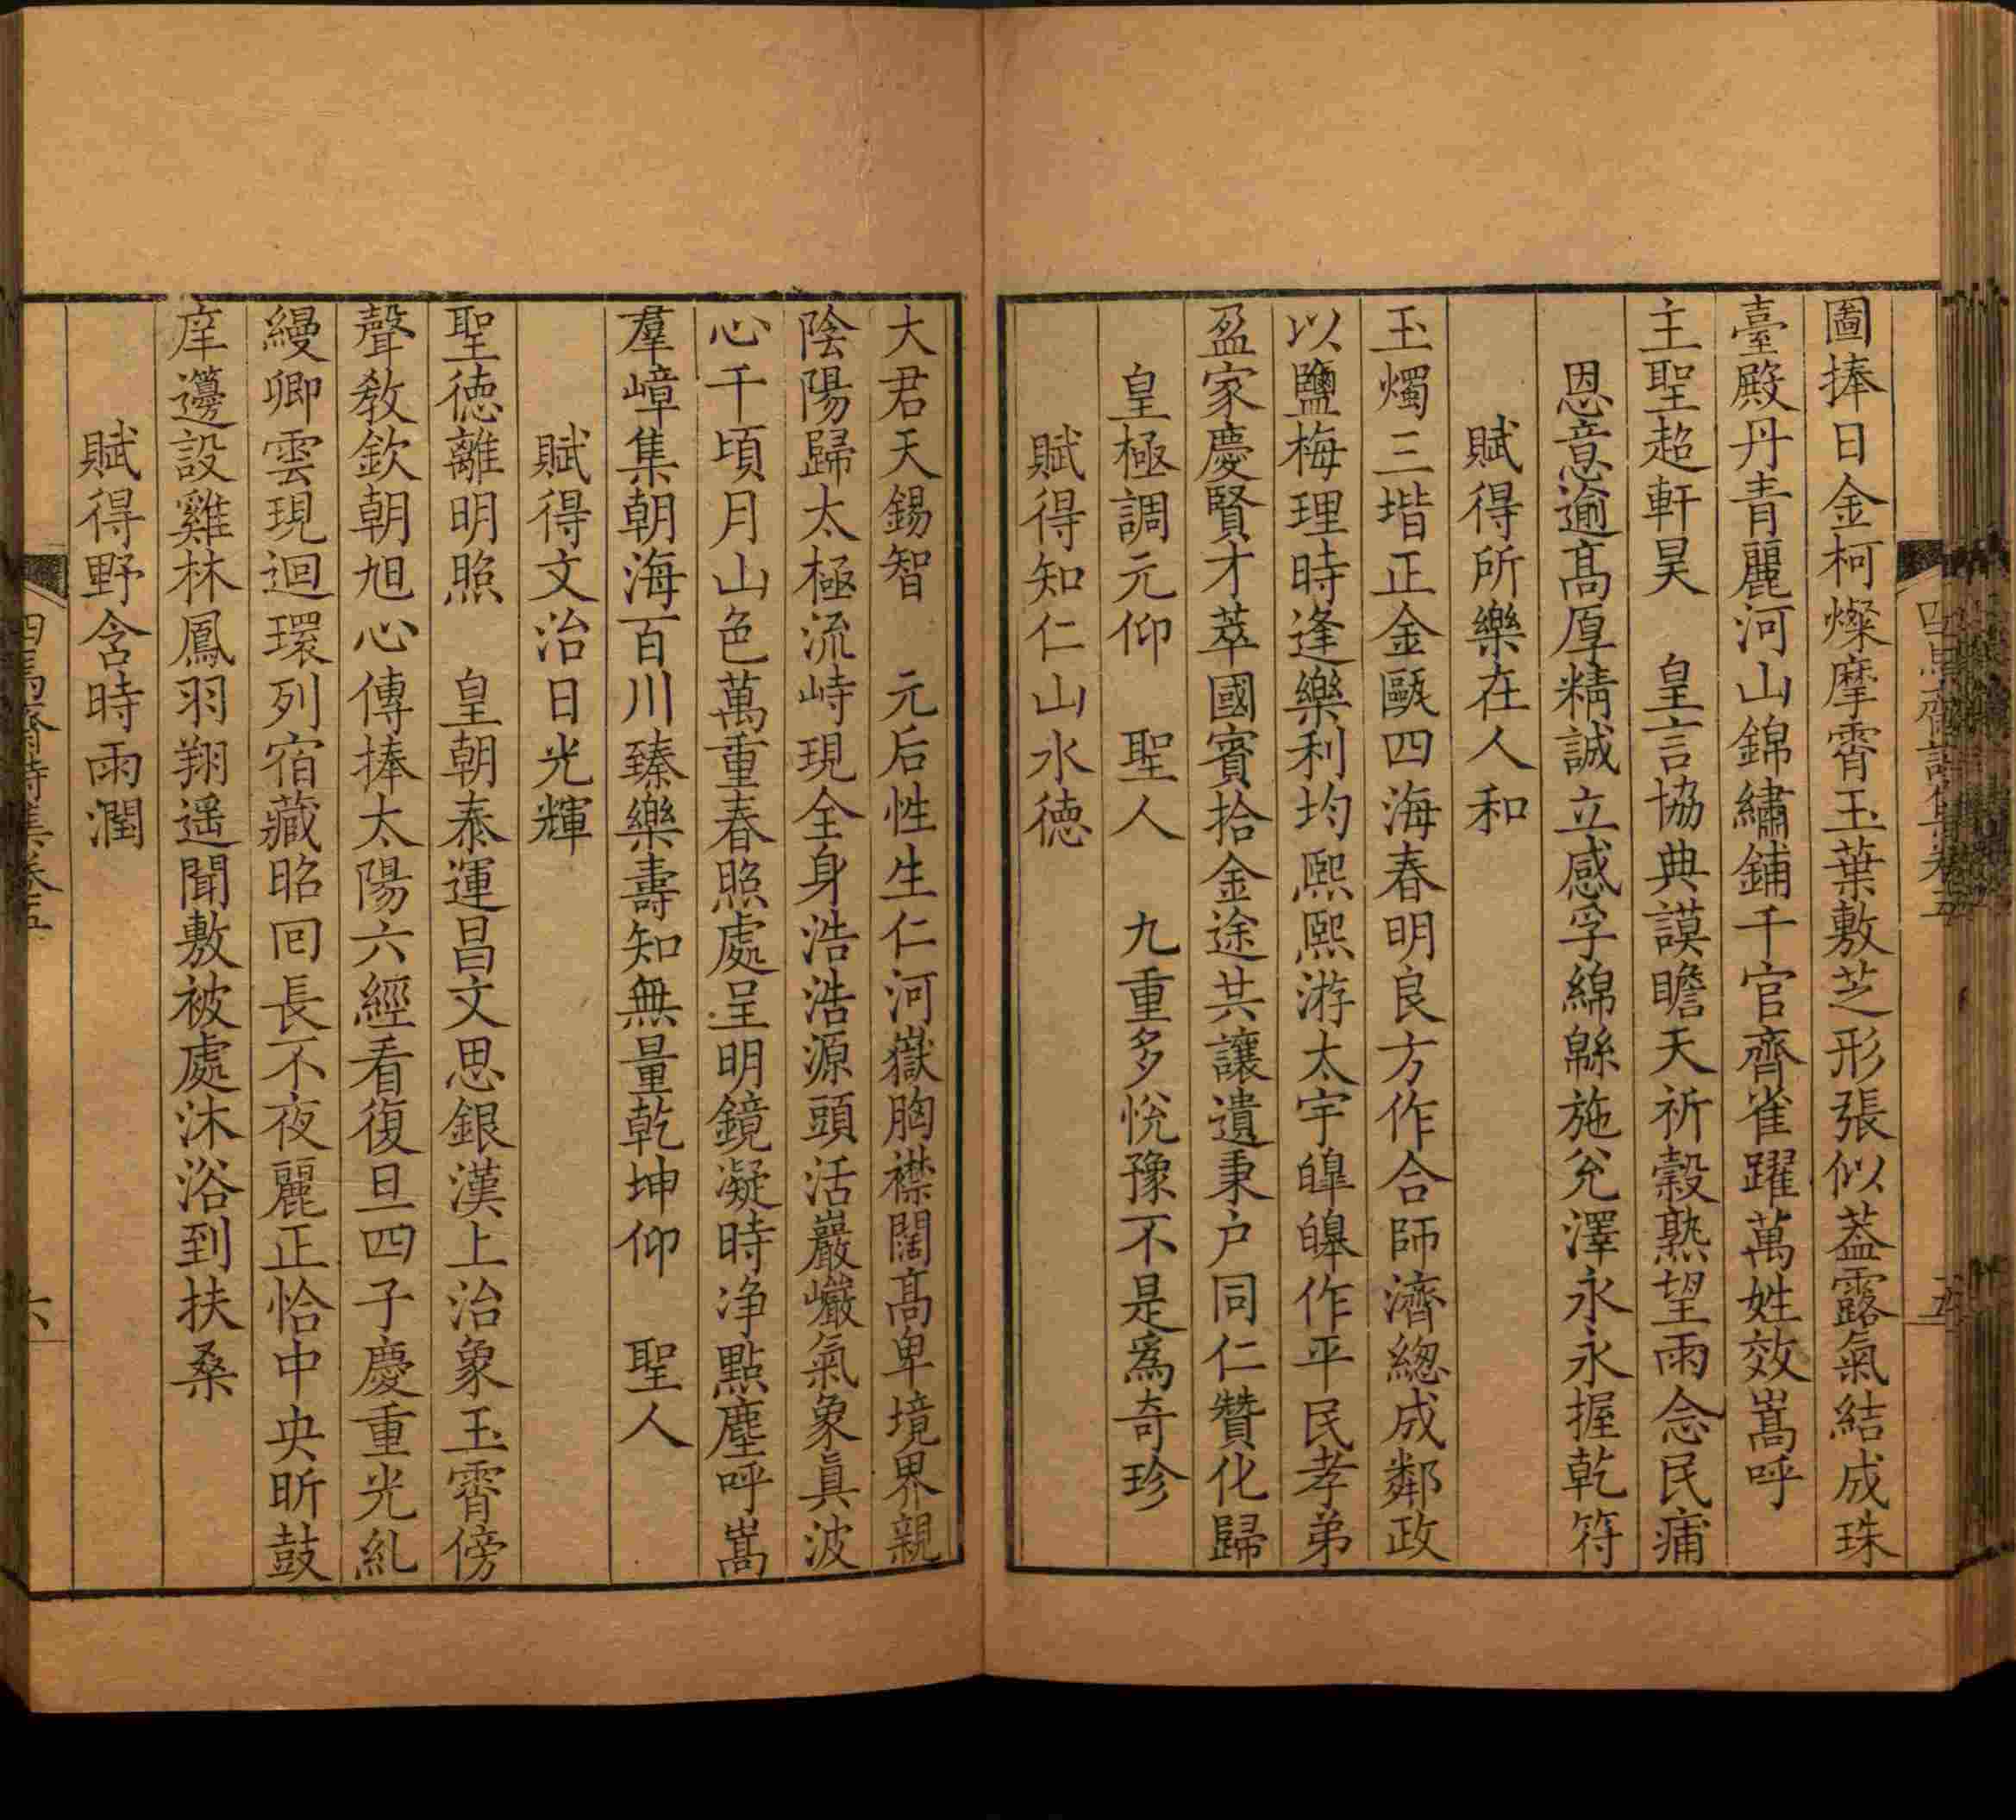 圖捧日金柯燦摩霄玉葉敷芝形張似葢露氣結成珠
臺殿丹青麗河山錦繡鋪千官齊雀躍萬姓效嵩呼
主聖超軒昊　皇言協典謨瞻天祈穀熟望雨念民痡
恩意逾髙厚精誠立感孚綿緜施兊澤永永握乾符
賦得所樂在人和
玉燭三堦正金甌四海春明良方作合師濟緫成鄰政
以鹽梅理時逢樂利均熙熙游太宇皥皥作平民孝弟
盈家慶賢才萃國賓拾金途共讓遺秉户同仁贊化歸
皇極調元仰　聖人　九重多悅豫不是爲奇珍
賦得知仁山水德
大君天錫智　元后性生仁河嶽胸襟闊髙卑境界親
陰陽歸太極流峙現全身浩浩源頭活巖巖氣象眞波
心千頃月山色萬重春照處呈明鏡凝時净點塵呼嵩
羣嶂集朝海百川臻樂壽知無量乾坤仰　聖人
賦得文治日光輝
聖德離明照　皇朝泰運昌文思銀漢上治象玉霄傍
聲敎欽朝旭心傳捧太陽六經看復旦四子慶重光糺
縵卿雲現迴環列宿藏昭回長不夜麗正恰中央昕鼓
庠邊設雞林鳳羽翔遥聞敷被處沐浴到扶桑
賦得野含時雨潤
四焉齋詩集卷五
六